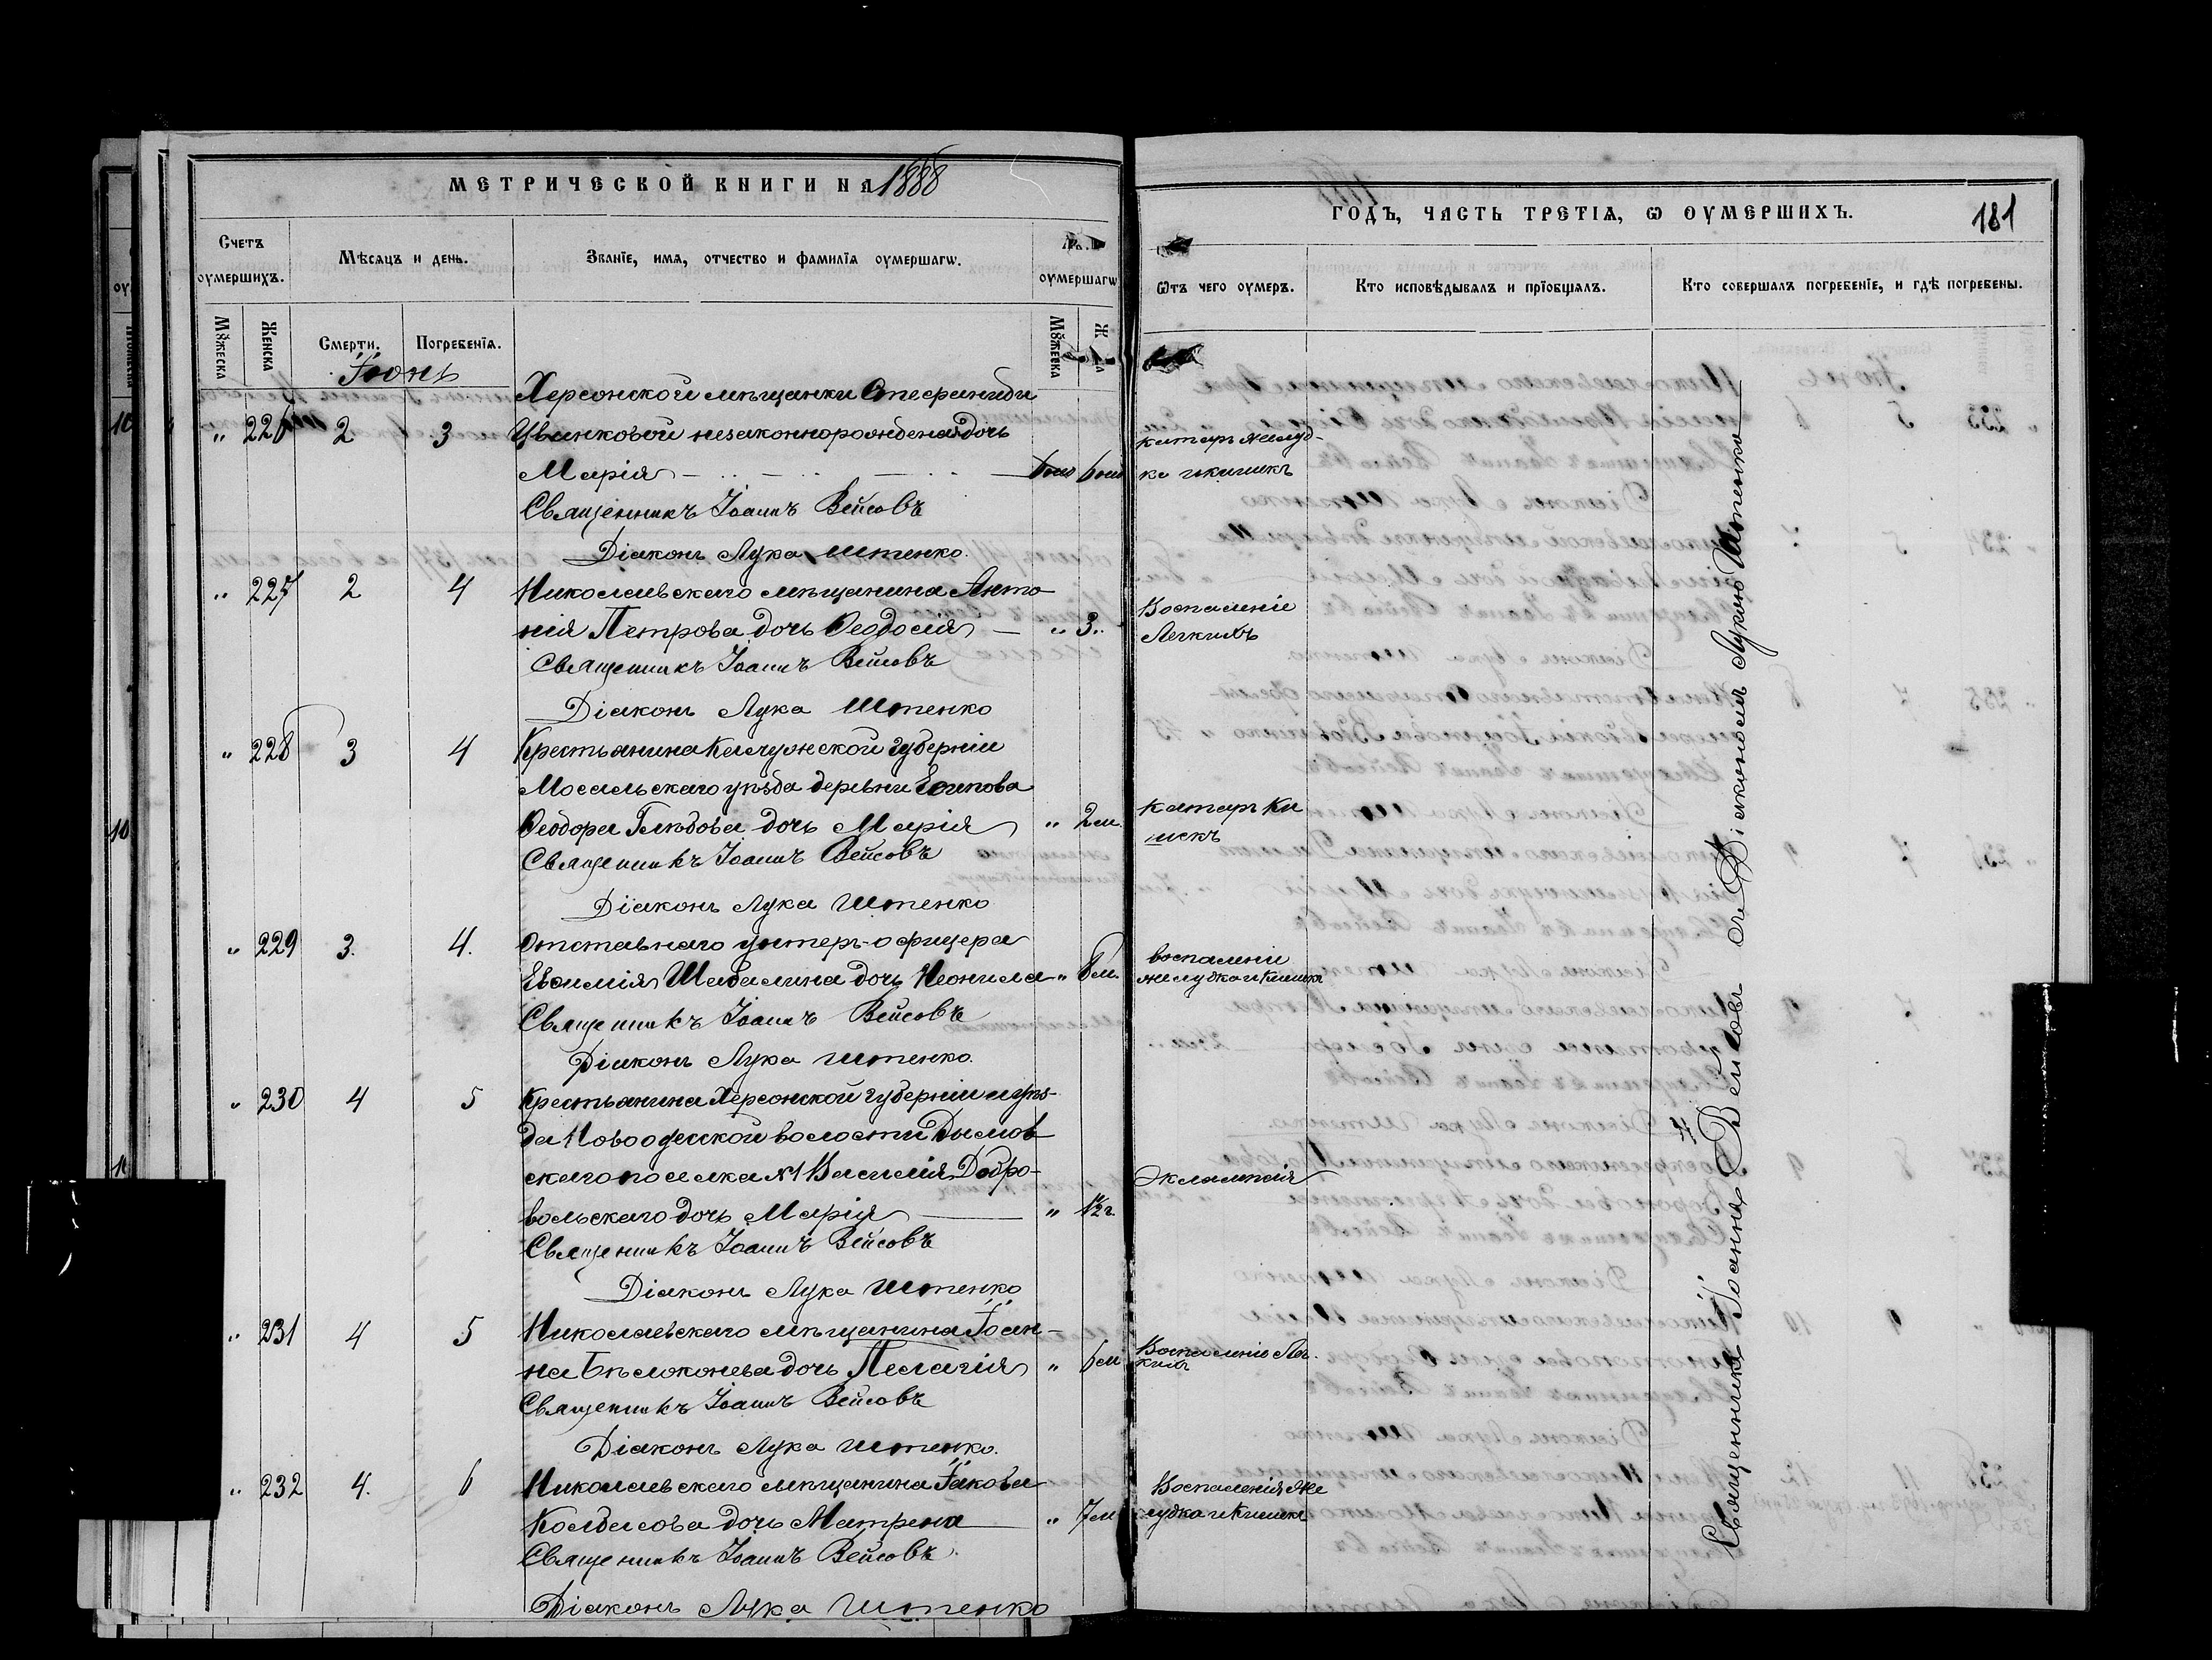 МЕТРИЧЕСКОЙ КНИГИ НА 1888
Счетъ оумершихъ.
Мѣсяцъ и день.
Званіе, имя, отчество и фамилія оумершагѡ.
оумершагѡ
Мꙋжеска
Женска
Смерти.
Погребенія.
Мꙋжеска
Іюнь
Херсонской мѣщанки
" 226 2 3 незаконнорожденная дочь
Марія 6 нед
Священникъ Іоаннъ Вейсовъ
Діаконъ Лука Штенко.
" 227 2 4 Николаевскаго мѣщанина Анто
нія Петрова дочь Ѳеодосія — " 3 "
Священникъ Іоаннъ Вейсовъ
Діаконъ Лука Штенко
" 228 3 4 Крестьянина Калужской губерніи
Мосальскаго уѣзда деревни
Ѳеодора дочь Марія " 2 м.
Священникъ Іоаннъ Вейсовъ
Діаконъ Лука Штенко
" 229 3. 4. Отставнаго унтеръ-офицера
Евѳимія Шабалина дочь Неонила " 8 м.
Священникъ Іоаннъ Вейсовъ
Діаконъ Лука Штенко.
" 230 4 5 Крестьянина Херсонской губерніи и уѣз-
да Новоодесской волости Дымов
скаго поселка №1 Василія Добро-
вольскаго дочь Марія — " 1½ г.
Священникъ Іоаннъ Вейсовъ
Діаконъ Лука Штенко
" 231 4 5 Николаевскаго мѣщанина Іоан-
на Бѣлоконева дочь Пелагія " 6 м
Священникъ Іоаннъ Вейсовъ
Діаконъ Лука Штенко.
" 232 4. 6 Николаевскаго мѣщанина Іакова
Колбасова дочь Матрена " 7 м
Священникъ Іоаннъ Вейсовъ.
Діаконъ Лука Штенко
ГОДЪ, ЧАСТЬ ТРЕТІЯ, Ѡ ОУМЕРШИХЪ.
181
Ѿтъ чего оумеръ.
Кто исповѣдывалъ и пріобщалъ.
Кто совершалъ погребеніе, и гдѣ погребены.
катаръ желуд-
ка и кишекъ
Воспаленіе
Легкихъ
Катаръ Ки
шекъ
воспаленіе
желудка и кишекъ
Эклампсія
Воспаленіе Лег
кихъ
Воспаленія Же
лудка и Кишекъ
Священникъ Іоаннъ Вейсовъ съ Діакономъ Лукою Штенко